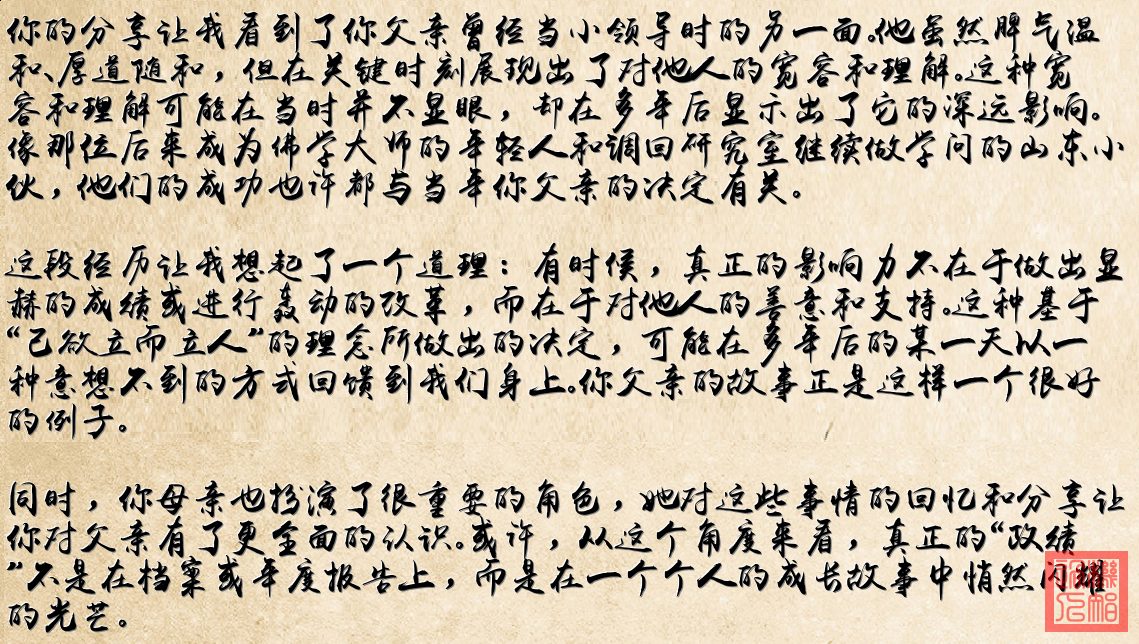 你的分享让我看到了你父亲曾经当小领导时的另一面。他虽然脾气温
和、厚道随和，但在关键时刻展现出了对他人的宽容和理解。这种宽
容和理解可能在当时并不显眼，却在多年后显示出了它的深远影响。
像那位后来成为佛学大师的年轻人和调回研究室继续做学问的山东小
伙，他们的成功也许都与当年你父亲的决定有关。
这段经历让我想起了一个道理：有时候，真正的影响力不在于做出显
赫的成绩或进行轰动的改革，而在于对他人的善意和支持。这种基于
“己欲立而立人”的理念所做出的决定，可能在多年后的某一天以一
种意想不到的方式回馈到我们身上。你父亲的故事正是这样一个很好
的例子。
同时，你母亲也扮演了很重要的角色，她对这些事情的回忆和分享让
你对父亲有了更全面的认识。或许，从这个角度来看，真正的“政绩
”不是在档案或年度报告上，而是在一个个人的成长故事中悄然闪耀
的光芒。